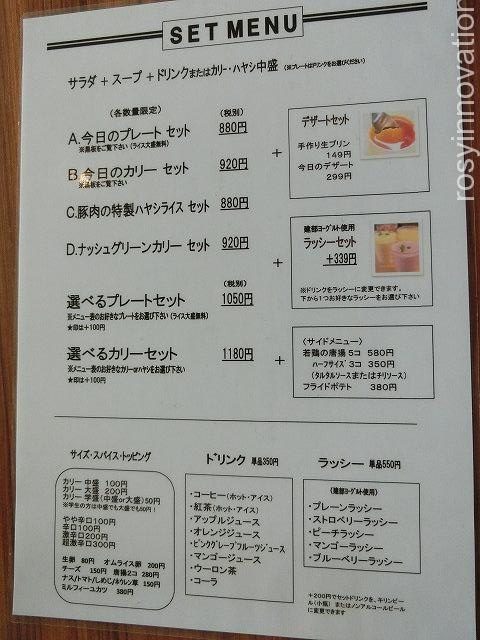 SET MENU
サラダ + スープ + ドリンクまたはカリー・ハヤシ中盛 (※プレートはドリンクをお選びください)
(各数量限定)
(税別)
A.今日のプレート セット 880円
※黒板をご覧下さい (ライス大盛無料)
B.今日のカリー セット 920円
※黒板をご覧下さい
C.豚肉の特製ハヤシライス セット 880円
D.ナッシュグリーンカリー セット 920円
(税別)
選べるプレートセット 1050円
※メニュー表のお好きなプレートをお選び下さい (ライス大盛無料)
★印は+100円
選べるカリーセット 1180円
※メニュー表のお好きなカリーorハヤシをお選び下さい
★印は+100円
+
デザートセット
手作り生プリン
149円
今日のデザート
299円
+
建部ヨーグルト使用
ラッシーセット
+339円
※ドリンクをラッシーに変更できます。
下から1つお好きなラッシーをお選び下さい
+
〈サイドメニュー〉
若鶏の唐揚 5コ 580円
ハーフサイズ 3コ 350円
(タルタルソースまたはチリソース)
フライドポテト 380円
サイズ・スパイス・トッピング
カリー 中盛 100円
カリー 大盛 200円
カリー 学盛(中盛or大盛)50円
※学生の方は中盛でも大盛でも50円!
やや辛口100円
辛口100円
激辛口200円
超激辛口300円
生卵 80円 オムライス卵 200円
チーズ 150円 唐揚2コ 280円
ナス/トマト/しめじ/ホウレン草 150円
ミルフィーユカツ 380円
ドリンク 単品350円
・コーヒー(ホット・アイス)
・紅茶(ホット・アイス)
・アップルジュース
・オレンジジュース
・ピンクグレープフルーツジュース
・マンゴージュース
・ウーロン茶
・コーラ
ラッシー 単品550円
(建部ヨーグルト使用)
・プレーンラッシー
・ストロベリーラッシー
・ピーチラッシー
・マンゴーラッシー
・ブルーベリーラッシー
+200円でセットドリンクを、キリンビール(小瓶) またはノンアルコールビールに変更できます。
rosyinnovation